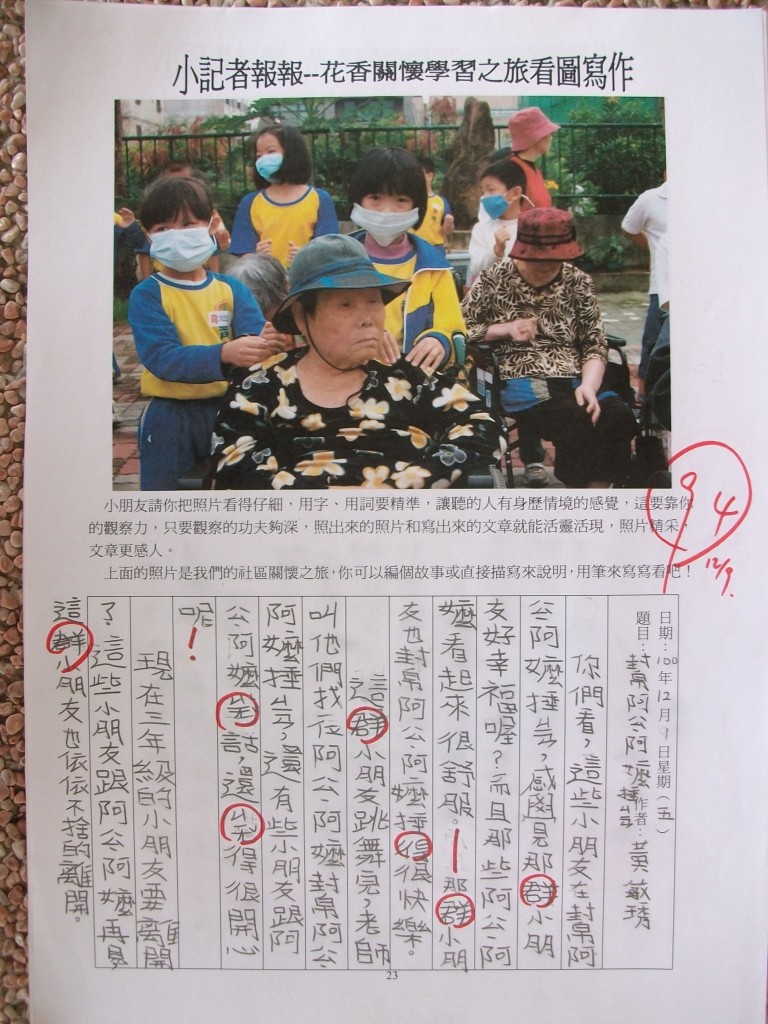 小記者報報--花香關懷學習之旅看圖寫作
小朋友請你把照片看得仔細，用字、用詞要精準，讓聽的人有身歷情境的感覺，這要靠你
的觀察力，只要觀察的功夫夠深，照出來的照片和寫出來的文章就能活靈活現，照片精采、
文章更感人。
上面的照片是我們的社區關懷之旅，你可以編個故事或直接描寫來說明，用筆來寫寫看吧！
94
12/9.
日期：100年12月9日星期（五）
題目：幫阿公阿嬤捶 作者：黃敏琇
你們看，這些小朋友在幫阿
公阿嬤捶，感覺那群小朋
友好幸福喔？而且那些阿公阿
嬤看起來很舒服。那群小朋
友也幫阿公阿嬤捶得很快樂。
這群小朋友跳舞完，老師
叫他們找位阿公阿嬤幫阿公
阿嬤捶，還有些小朋友跟阿
公阿嬤說話，還笑得很開心
呢！
現在三年級的小朋友要離開
了，這些小朋友跟阿公阿嬤再見
這群小朋友也依依不捨的離開。
23